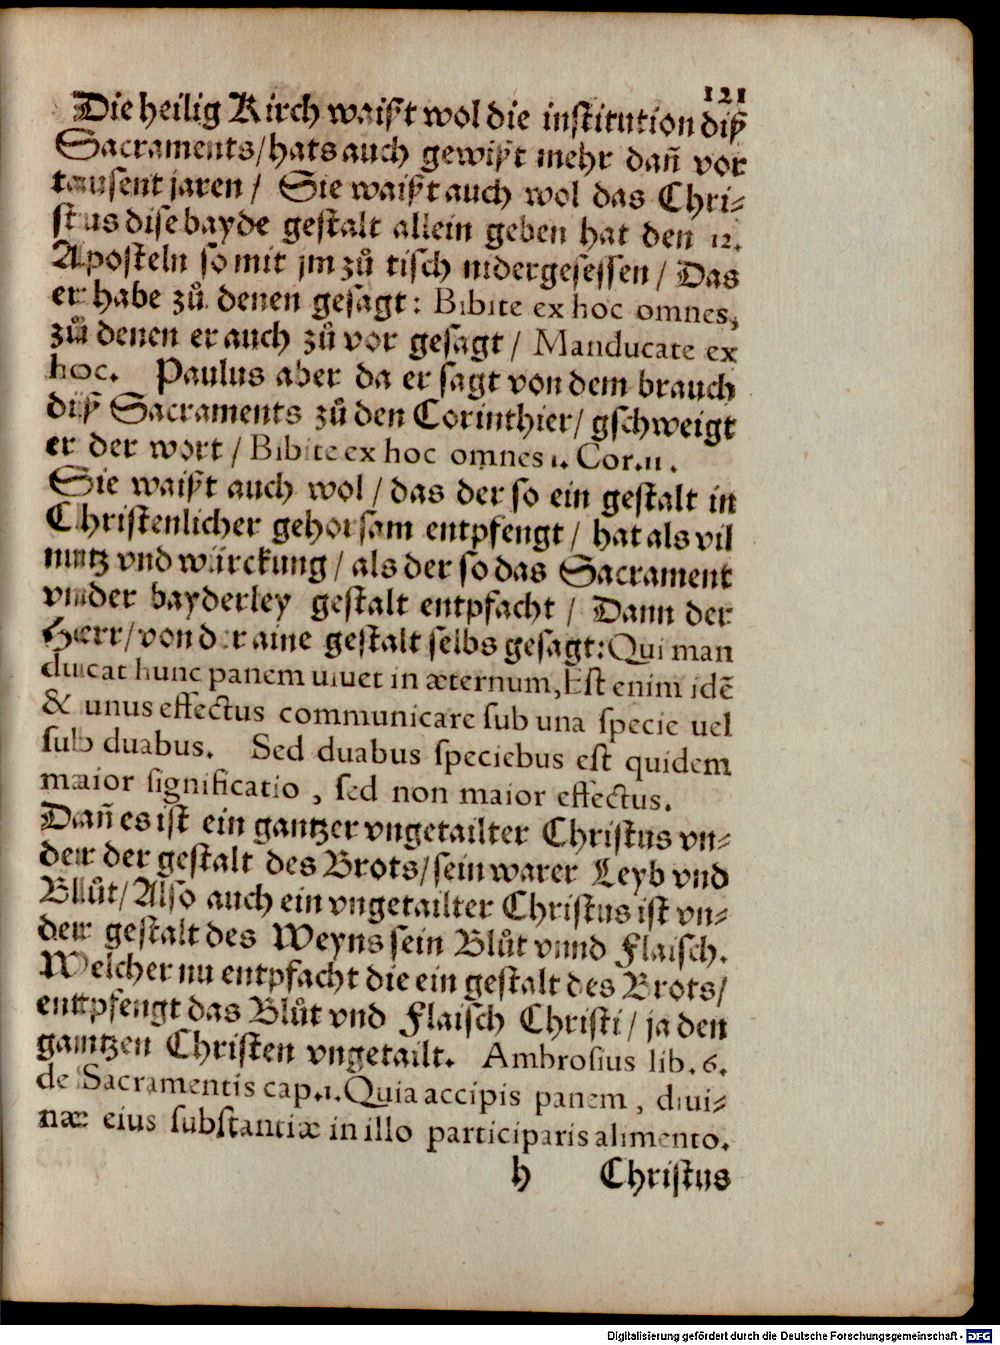 121
Die heilig Kirch waißt wol die institution diß
Sacraments/hats auch gewißt mehr dañ vor
tausent jaren / Sie waißt auch wol das Chri⸗
stus dise bayde gestalt allein geben hat den 12.
Aposteln so mit jm zů tisch nidergesessen / Das
er habe zů denen gesagt: Bibite ex hoc omnes,
zů denen er auch zů vor gesagt / Manducate ex
hoc. Paulus aber da er sagt von dem brauch
diß Sacraments zů den Corinthier/ gschweigt
er der wort / Bibite ex hoc omnes 1. Cor. 11.
Sie waißt auch wol / das der so ein gestalt in
Christenlicher gehorsam entpfengt / hat als vil
nutz vnd würckung / als der so das Sacrament
vnder bayderley gestalt entpfacht / Dann der
Herr/ von der aine gestalt selbs gesagt: Qui man
ducat hunc panem uiuet in æternum, Est enim idē
& unus effectus communicare sub una specie uel
sub duabus. Sed duabus speciebus est quidem
maior significatio, sed non maior effectus.
Dañ es ist ein gantzer vngetailter Christus vn⸗
der der gestalt des Brots/ sein warer Leyb vnd
Blůt/ Also auch ein vngetailter Christus ist vn⸗
der gestalt des Weyns sein Blůt vnnd Flaisch.
Welcher nu entpfacht die ein gestalt des Brots/
entpfengt das Blůt vnd Flaisch Christi / ja den
gantzen Christen vngetailt. Ambrosius lib. 6.
de Sacramentis cap. 1. Quia accipis panem, diui⸗
næ eius substantiæ in illo participaris alimento.
h Christus
Digitalisierung gefördert durch die Deutsche Forschungsgemeinschaft - DFG